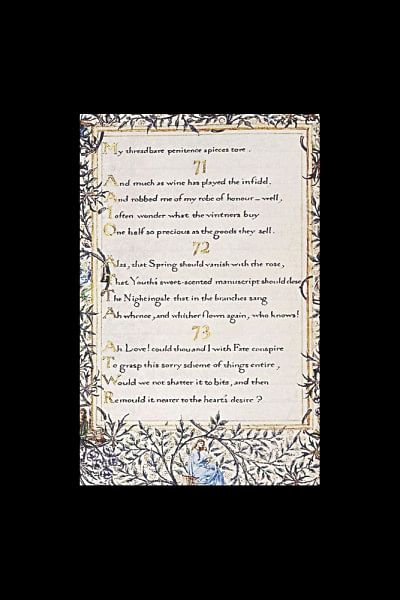 My threadbare penitence apieces tore.
71
And much as wine has played the infidel,
And robbed me of my robe of honour – well,
I often wonder what the vintners buy
One half so precious as the goods they sell.
72
Alas, that Spring should vanish with the rose,
That Youth's sweet-scented manuscript should close
The Nightingale that in the branches sang
Ah whence, and whither flown again, who knows!
73
Ah Love! could thou and I with Fate conspire
To grasp this sorry scheme of things entire,
Would we not shatter it to bits, and then
Remould it nearer to the heart's desire?